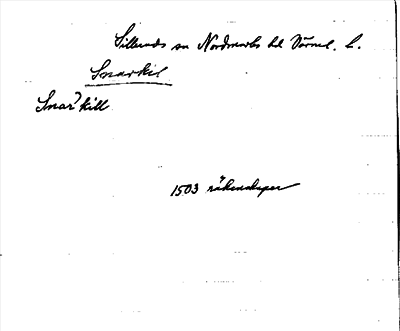 Silleruds sn Nordmarks hd Värml. l.
Snarkil
Snar?kill
1503 räkenskaper